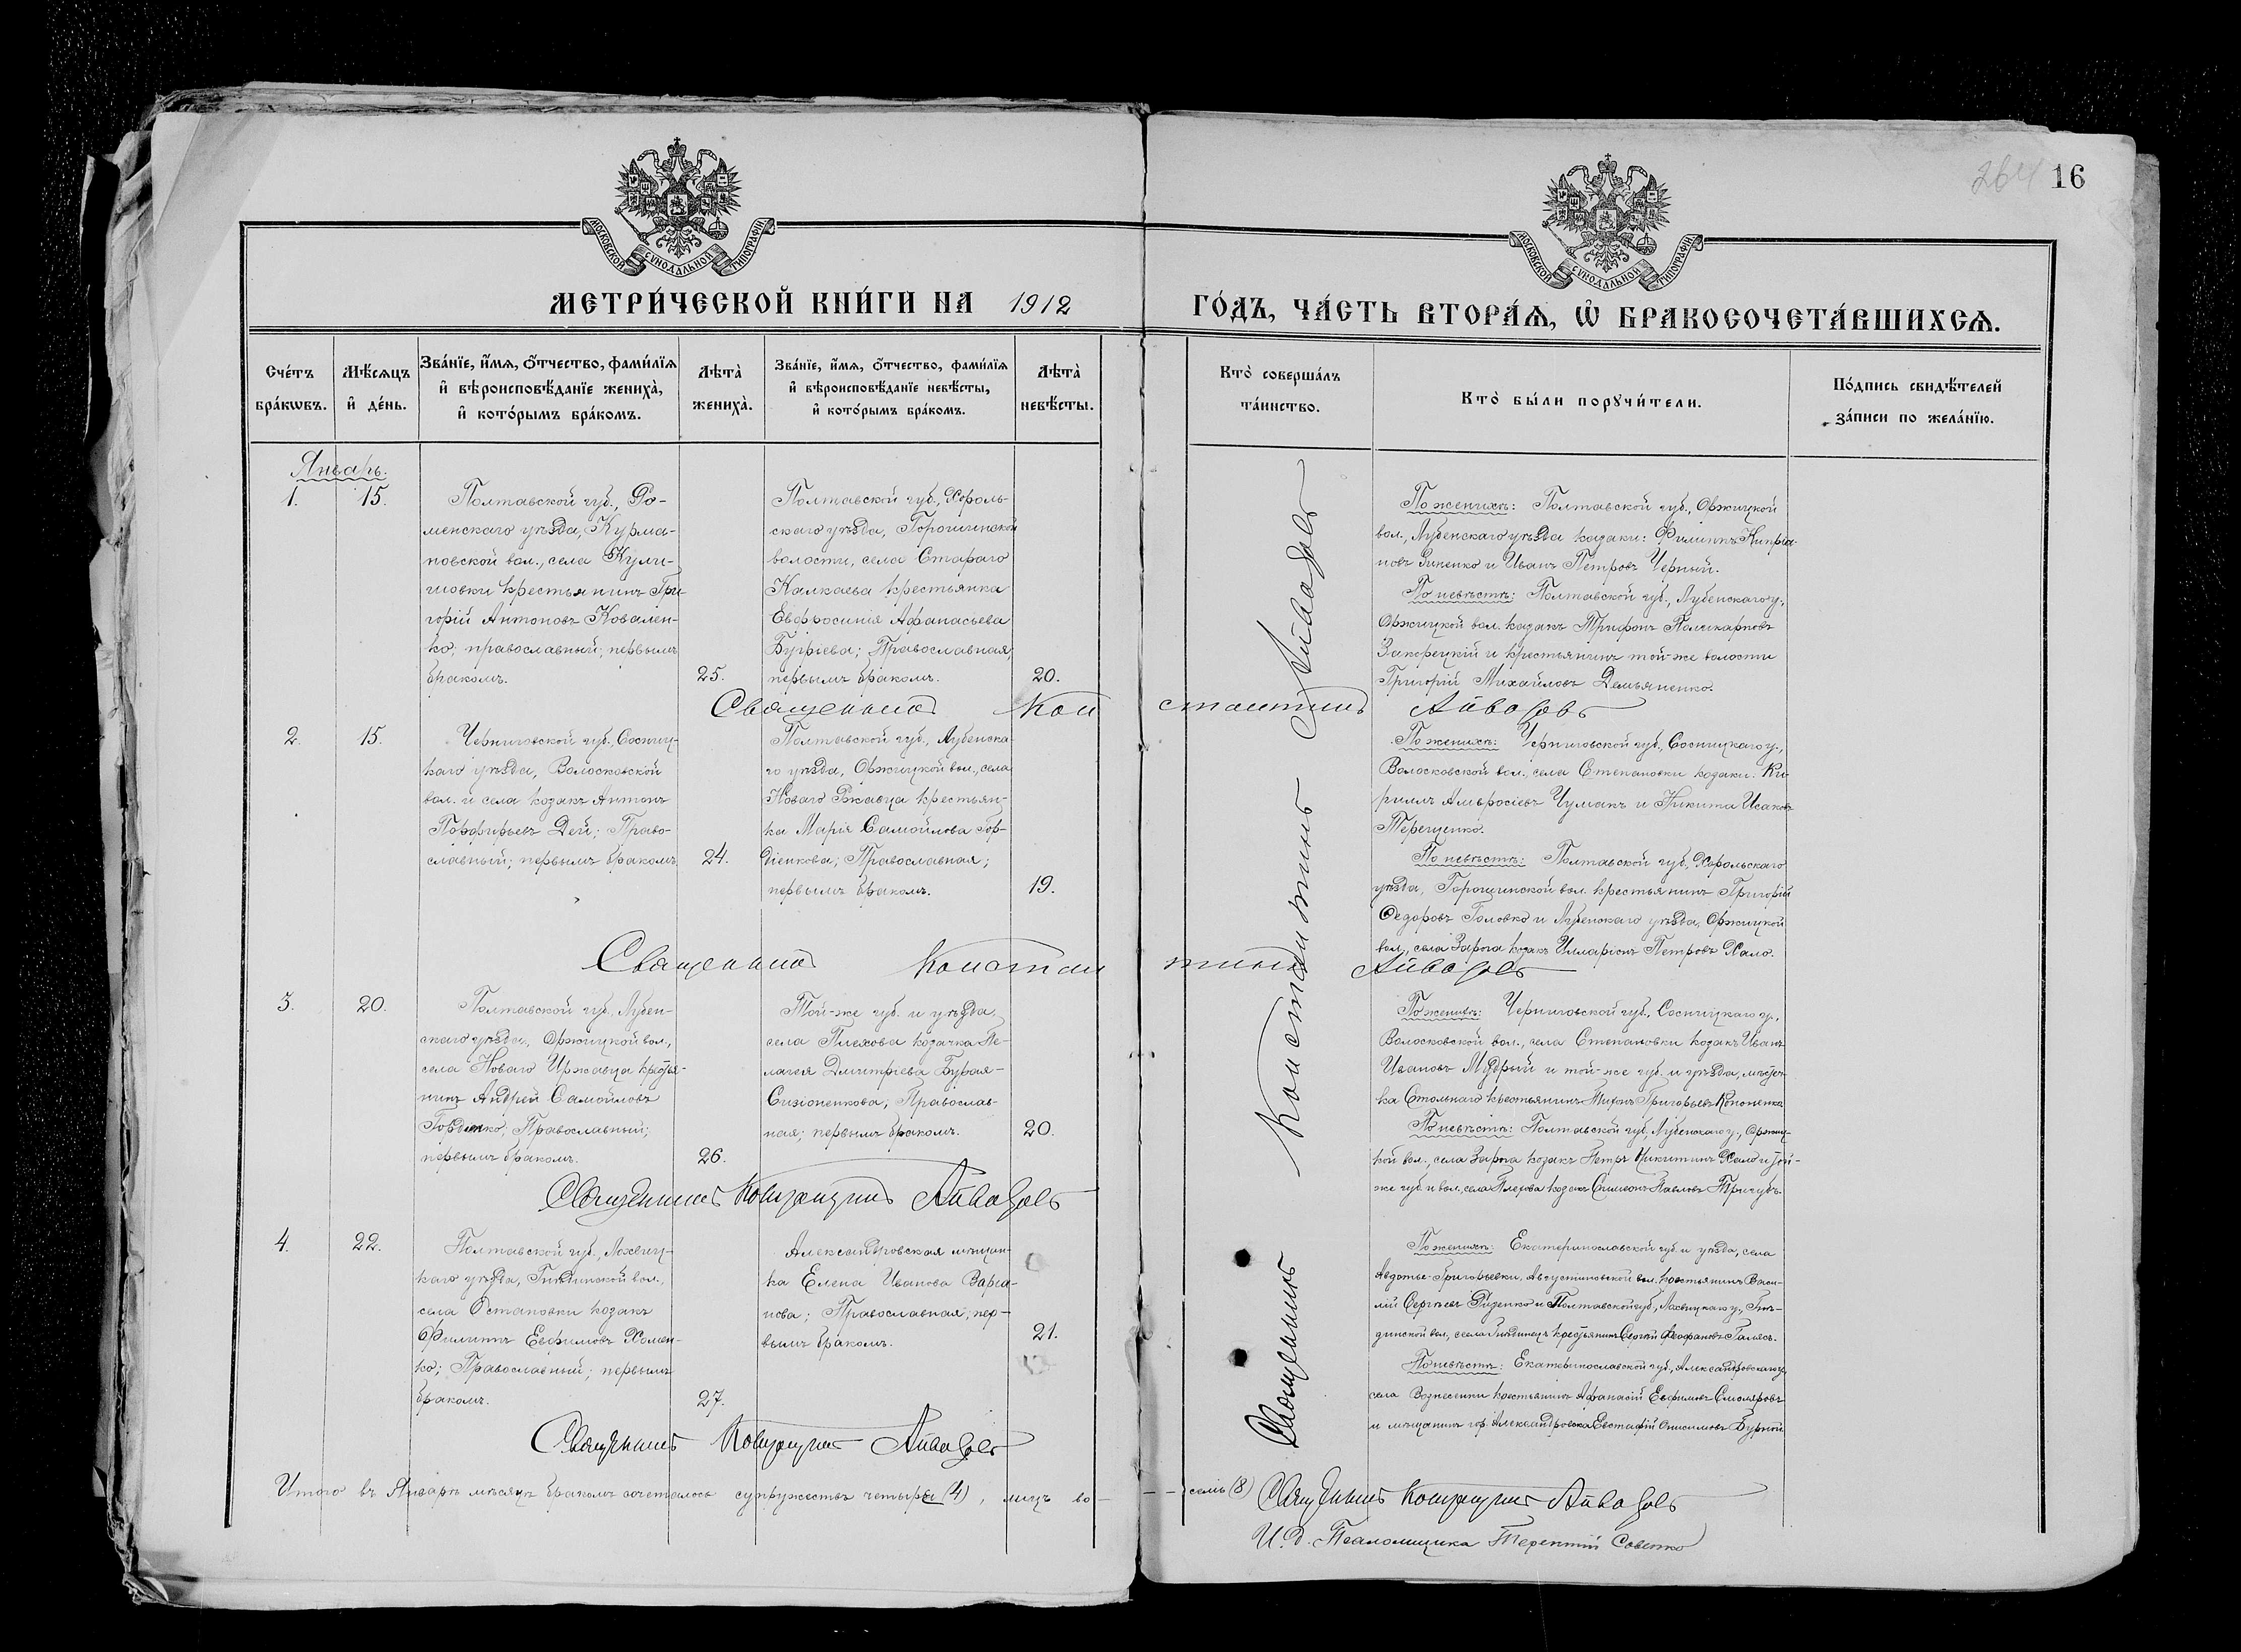 264 16
МОСКОВСКОЙ СѴНОДАЛЬНОЙ ТИПОГРАФІИ
МОСКОВСКОЙ СѴНОДАЛЬНОЙ ТИПОГРАФІИ
МЕТРИ́ЧЕСКОЙ КНИ́ГИ НА 1912
ГО́ДЪ, ЧА́СТЬ ВТОРА́Ѧ, Ѡ҆ БРАКОСОЧЕТА́ВШИХСѦ.
Сче́тъ бра́кѡвъ.
Мѣ́сѧцъ и҆ де́нь.
Зва́нїе, и҆́мѧ, ѻ҆́тчество, фами́лїѧ
и҆ вѣроисповѣ́данїе жениха̀,
и҆ кото́рымъ бра́комъ.
Лѣта̀ жениха̀.
Зва́нїе, и҆́мѧ, ѻ҆́тчество, фами́лїѧ
и҆ вѣроисповѣ́данїе невѣ́сты,
и҆ кото́рымъ бра́комъ.
Лѣта̀ невѣ́сты.
Кто̀ соверша́лъ
та́инство.
Кто̀ бы́ли порꙋчи́тели.
По́дпись свидѣ́телей
за́писи по жела́нїю.
Январь.
1. 15.
Полтавской губ., Ро-
менскаго уѣзда, Курма-
новской вол., села Кули-
шовки крестьянинъ Гри-
горій Антоновъ Ковален-
ко; православный; первымъ
бракомъ.
25.
Полтавской губ., Хороль-
скаго уѣзда, Горошинской
волости, села Стараго
Калкаева крестьянка
Евфросинія Афанасьева
Бугріева; Православная;
первымъ бракомъ.
20.
По женихѣ: Полтавской губ., Оржицкой
вол., Лубенскаго уѣзда козаки: Филиппъ Кипріа-
новъ Зиненко и Иванъ Петровъ Черный.
По невѣстѣ: Полтавской губ., Лубенскаго у.,
Оржицкой вол. козакъ Трифонъ Поликарповъ
Закорецкій и крестьянинъ той-же волости
Григорій Михайловъ Демьяненко.
Священникъ Константинъ Айвазовъ
2. 15.
Черниговской губ., Сосниц-
каго уѣзда, Волосковской
вол. и села козакъ Антонъ
Порфирьевъ Дей; Право-
славный; первымъ бракомъ.
24.
Полтавской губ., Лубенска-
го уѣзда, Оржицкой вол., села
Новаго Ржавца крестьян-
ка Марія Самойлова Гор-
діенкова; Православная;
первымъ бракомъ.
19.
По женихѣ: Черниговской губ., Сосницкаго у.,
Волосковской вол., села Степановки козаки: Ки-
риллъ Амвросіевъ Чумакъ и Никита Исаковъ
Терещенко.
По невѣстѣ: Полтавской губ., Хорольскаго
уѣзда, Горошинской вол. крестьянинъ Григорій
Федоровъ Головко и Лубенскаго уѣзда, Оржицкой
вол., села Зарога козакъ Илларіонъ Петровъ Хало.
Священникъ Константинъ Айвазовъ
3. 20.
Полтавской губ., Лубен-
скаго уѣзда, Оржицкой вол.,
села Новаго Иржавца крестья-
нинъ Андрей Самойловъ
Гордіенко; Православный;
первымъ бракомъ.
26.
Той-же губ. и уѣзда,
села Плехова козачка Пе-
лагея Дмитріева Бурая-
Сизоненкова; Православ-
ная; первымъ бракомъ.
20.
По женихѣ: Черниговской губ., Сосницкаго у.,
Волосковской вол., села Степановки козакъ Иванъ
Ивановъ Мудрый и той-же губ. и уѣзда, мѣстеч-
ка Стольнаго крестьянинъ Тихонъ Григорьевъ Кононенко
По невѣстѣ: Полтавской губ., Лубенскаго у., Оржиц-
кой вол., села Зарога козакъ Петръ Никитинъ Хало и той-
же губ. и вол., села Плехова козакъ Симеонъ Павловъ Тричубъ.
Священникъ Константинъ Айвазовъ
4. 22.
Полтавской губ., Лохвиц-
каго уѣзда, Гиндинской вол.,
села Остановки козакъ
Филиппъ Евфимовъ Хомен-
ко; Православный; первымъ
бракомъ.
27.
Александровская мѣщан-
ка Елена Иванова Варла-
нова; Православная; пер-
вымъ бракомъ.
21.
По женихѣ: Екатеринославской губ. и уѣзда, села
Авдотье-Григорьевки, Августиновской вол. крестьянинъ Васи-
лій Сергѣевъ Руденко и Полтавской губ., Лохвицкаго у., Гин-
динской вол., села Гиндинецъ крестьянинъ Сергій Феофановъ Галясъ.
По невѣстѣ: Екатеринославской губ., Александровскаго у.,
села Вознесенки крестьянинъ Афанасій Евфимовъ Смоляровъ
и мѣщанинъ гор. Александровска Евстафій Онисимовъ Бурный
Священникъ Константинъ Айвазовъ
Священникъ Константинъ Айвазовъ
Итого въ Январѣ мѣсяцѣ бракомъ сочеталось супружествъ четыре (4), лицъ во-
семь (8) Священникъ Константинъ Айвазовъ
И. д. Псаломщика Терентій Совенко